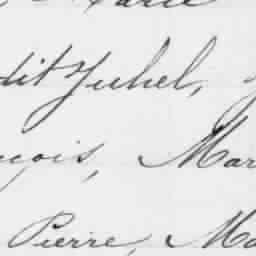 Marie
dit Juhel,
çois, Mar
Pierre, Ma